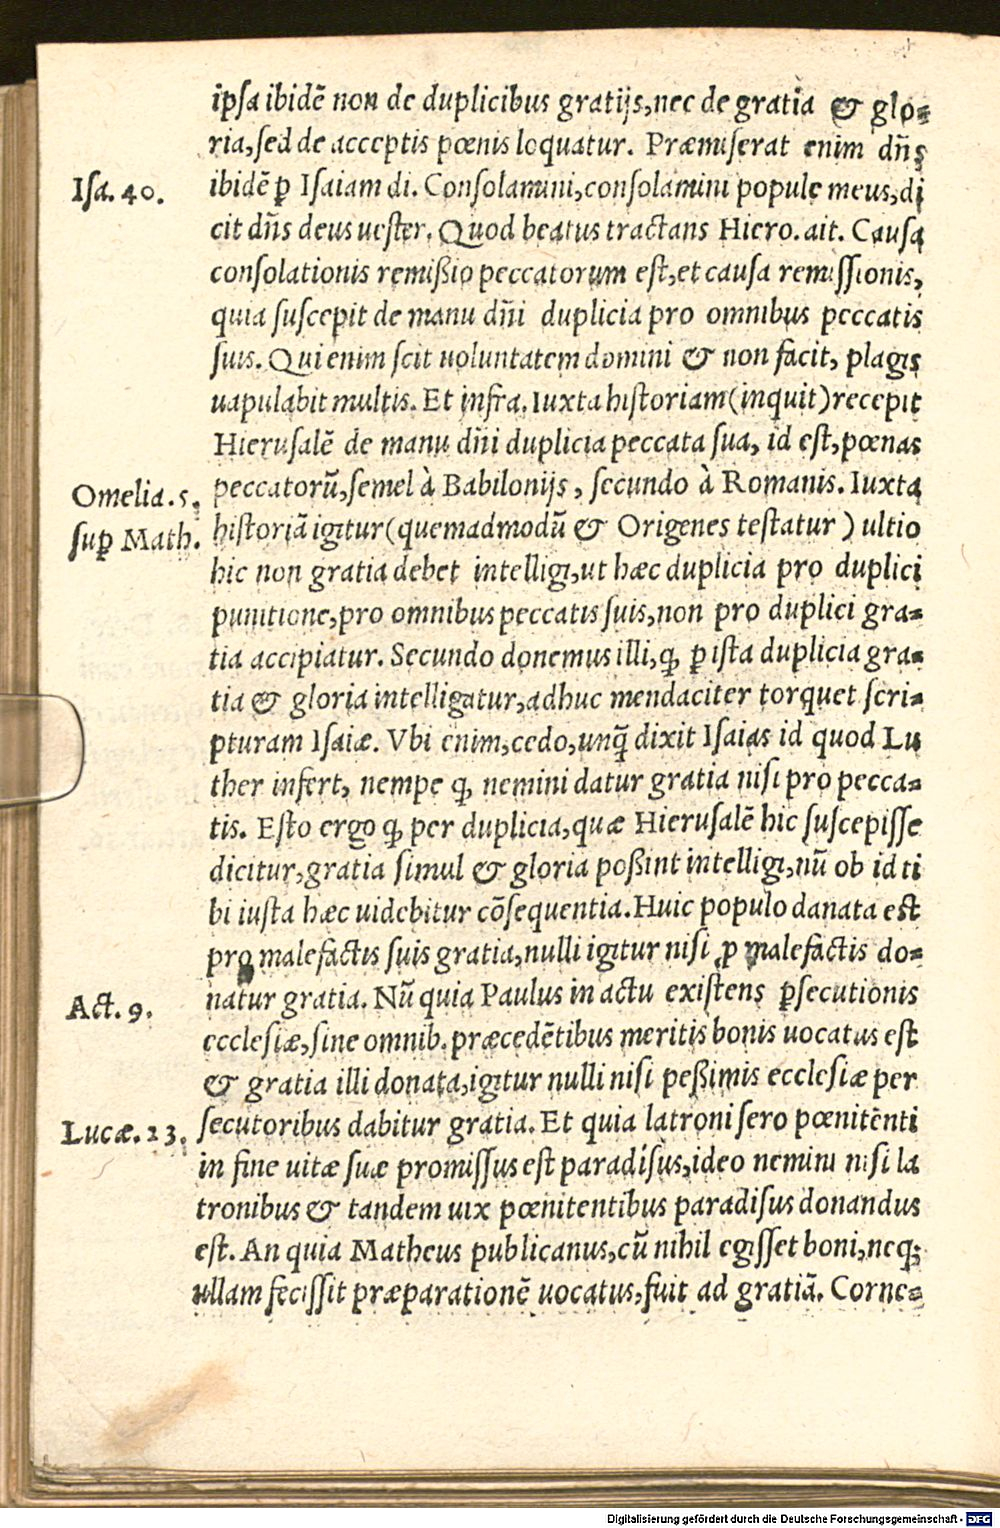 ipsa ibidē non de duplicibus gratijs, nec de gratia & glo=
ria, sed de acceptis pœnis loquatur. Præmiserat enim dñs
Isa. 40.
ibidē ꝑ Isaiam di. Consolamini, consolamini popule meus, di
cit dñs deus uester. Quod beatus tractans Hiero. ait. Causa
consolationis remißio peccatorum est, et causa remissionis,
quia suscepit de manu dñi duplicia pro omnibus peccatis
suis. Qui enim scit uoluntatem domini & non facit, plagis
uapulabit multis. Et infra. Iuxta historiam (inquit) recepit
Hierusalē de manu dñi duplicia peccata sua, id est, pœnas
Omelia. 5.
sup Math.
peccatorū, semel à Babilonijs, secundo à Romanis. Iuxta
historiā igitur (quemadmodū & Origenes testatur) ultio
hic non gratia debet intelligi, ut hæc duplicia pro duplici
punitione, pro omnibus peccatis suis, non pro duplici gra=
tia accipiatur. Secundo donemus illi, ꝙ ꝑ ista duplicia gra=
tia & gloria intelligatur, adhuc mendaciter torquet scri=
pturam Isaiæ. Vbi enim, cedo, unq̄ dixit Isaias id quod Lu
ther infert, nempe ꝙ nemini datur gratia nisi pro pecca=
tis. Esto ergo ꝙ per duplicia, quæ Hierusalē hic suscepisse
dicitur, gratia simul & gloria poßint intelligi, nū ob id ti
bi iusta hæc uidebitur cōsequentia. Huic populo danata est
pro malefactis suis gratia, nulli igitur nisi ꝓ malefactis do=
Act. 9.
natur gratia. Nū quia Paulus in actu existens ꝑsecutionis
ecclesiæ, sine omnib. præcedētibus meritis bonis uocatus est
& gratia illi donata, igitur nulli nisi peßimis ecclesiæ per
Lucæ. 23.
secutoribus dabitur gratia. Et quia latroni sero pœnitēnti
in fine uitæ suæ promissus est paradisus, ideo nemini nisi la
tronibus & tandem uix pœnitentibus paradisus donandus
est. An quia Matheus publicanus, cū nihil egisset boni, neq;
ullam fecissit præparationē uocatus, fuit ad gratiā. Corne=
Digitalisierung gefördert durch die Deutsche Forschungsgemeinschaft - DFG